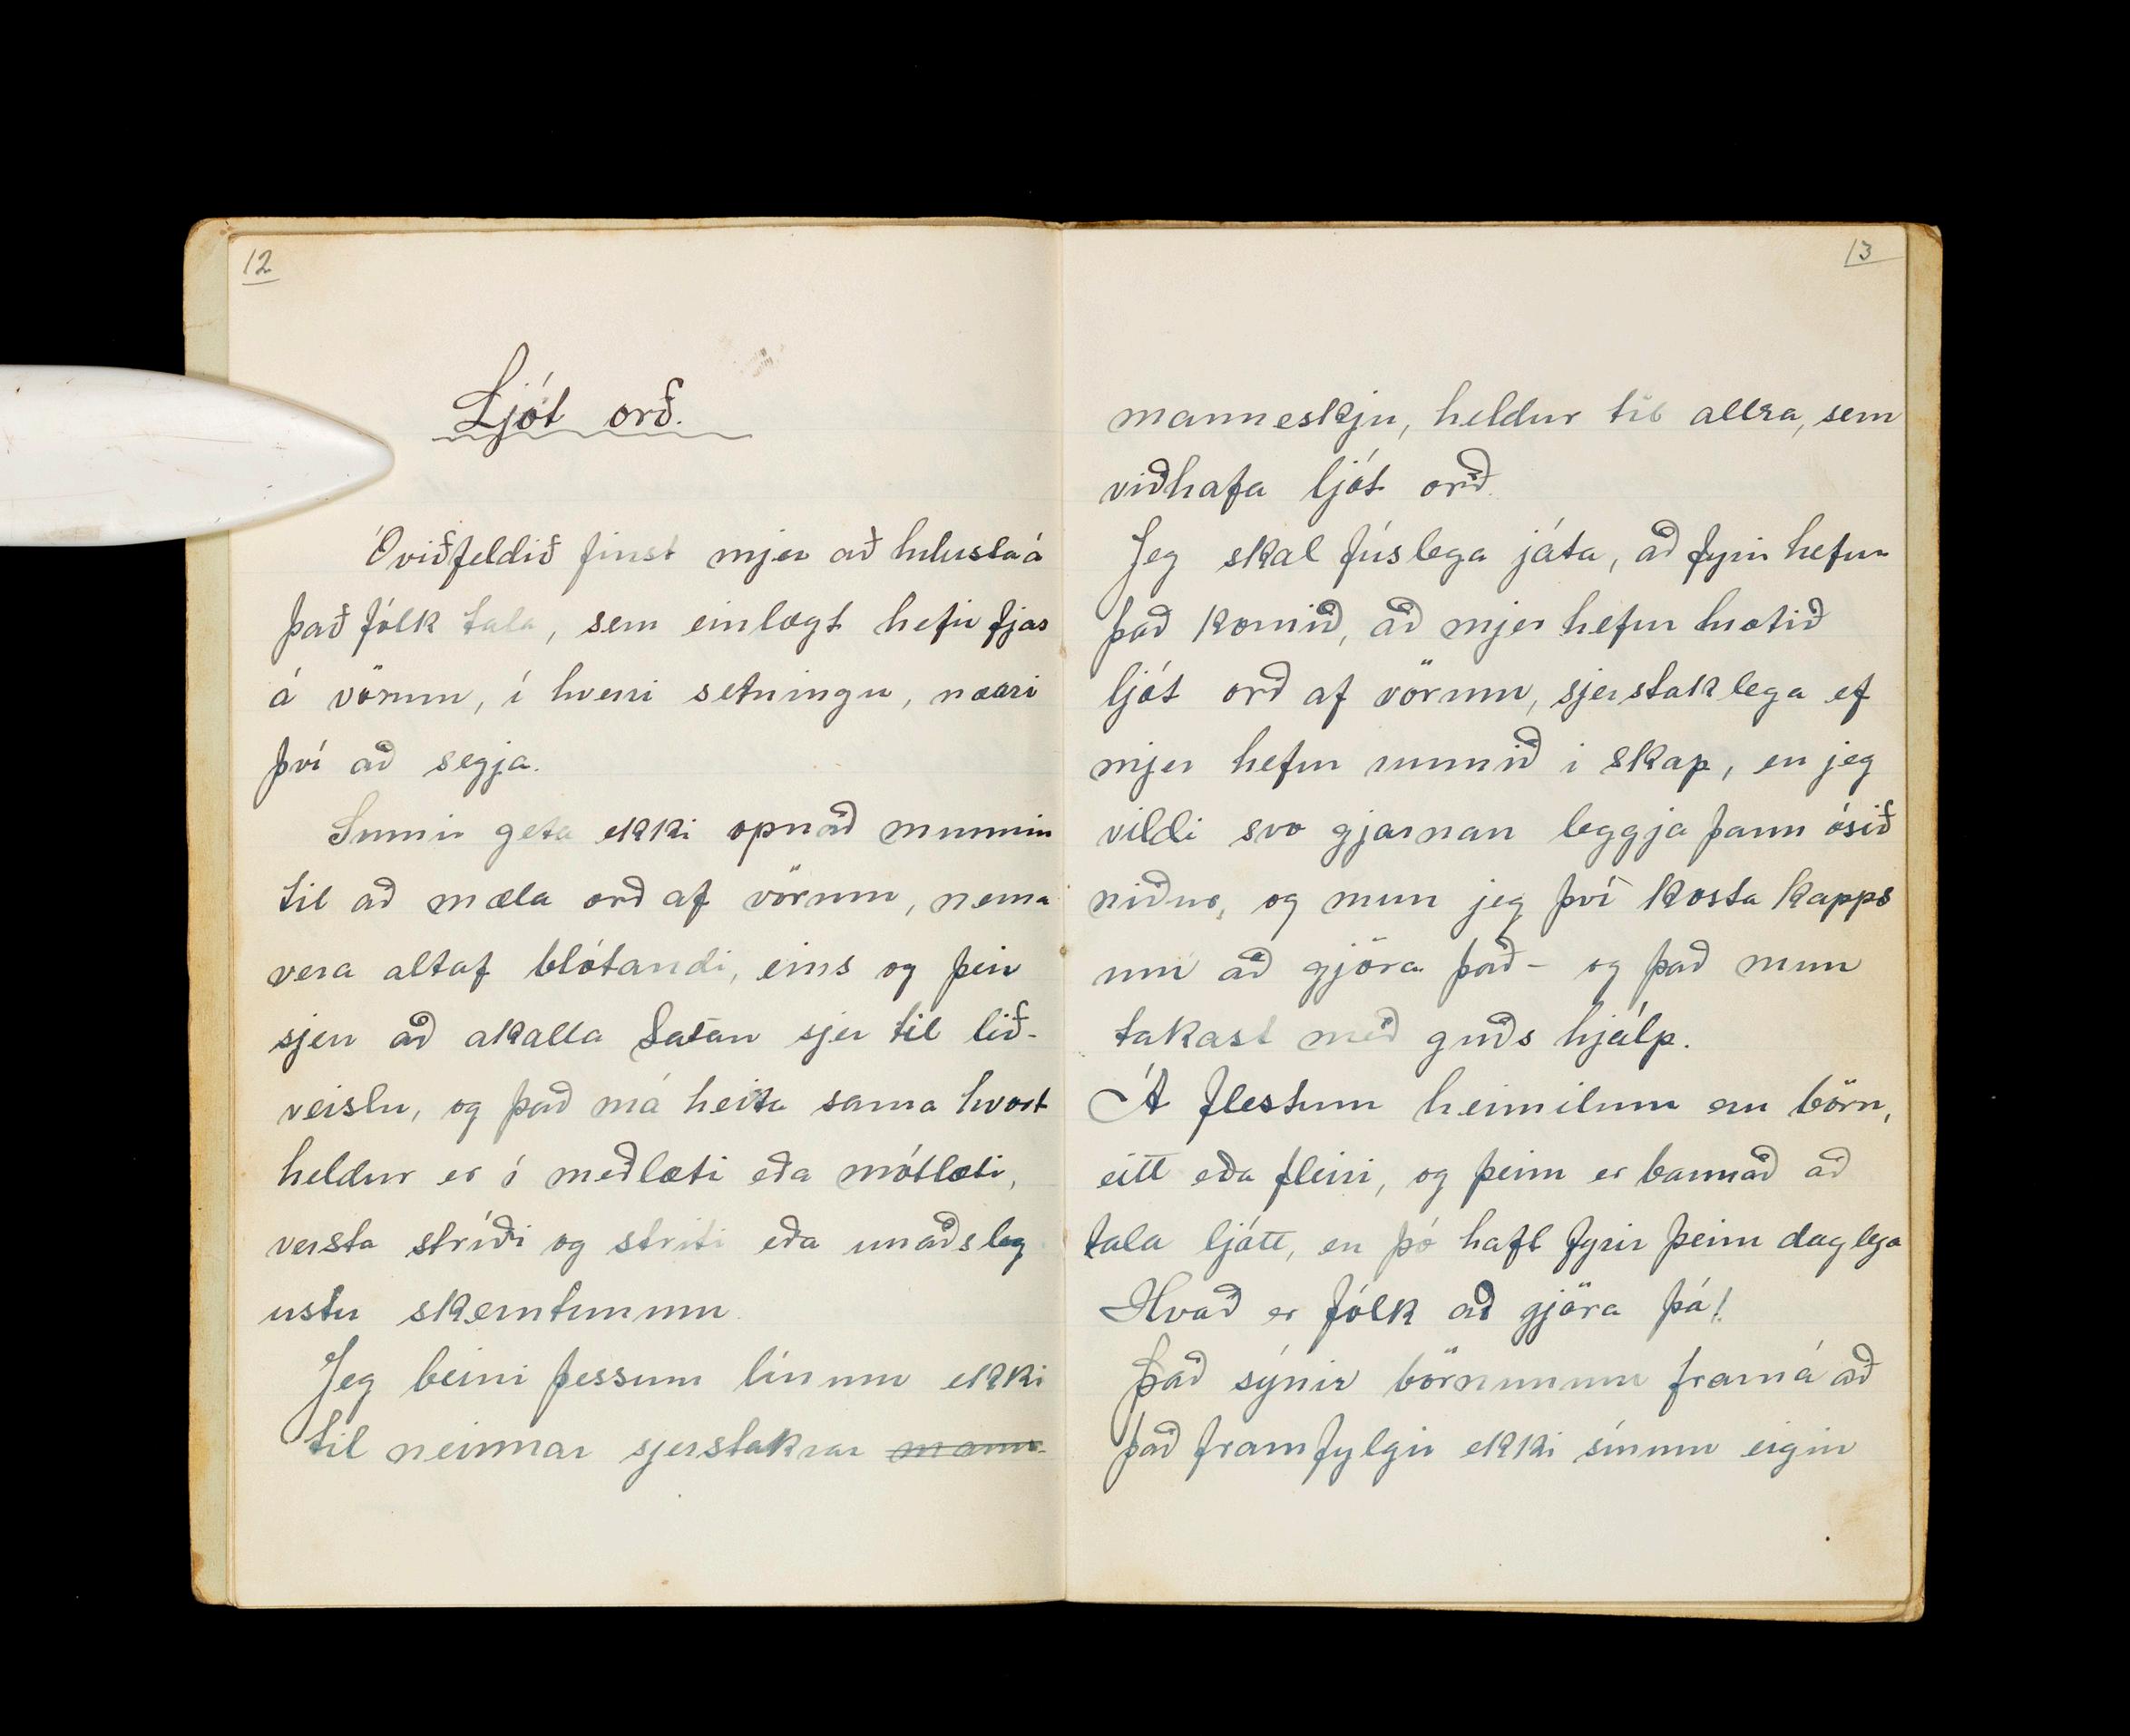 12
Ljót orð.
Óviðfeldið finst mjer að hlusta á
það fólk tala, sem einlægt hefir fjas
á vörum, í hverri setningu, næрri
því að segja.
Sumir geta ekki opnað munnin
til að mæla orð af vörum, nema
vera altaf blótandi, eins og þeir
sjeu að akalla Satan sjer til lið-
veislu, og það má heita sama hvort
heldur er í meðlæti eða mótlæti,
versta stríði og striti eða unaðsleg
ustu skemtunum.
Jeg beini þessum línum ekki
til neinnar sjerstakrar mann-
13
manneskju, heldur til allra, sem
viðhafa ljót orð.
Jeg skal fúslega játa, að fyrir hefur
það komið, að mjer hefur hrotið
ljót orð af vörum, sjerstaklega ef
mjer hefur runnið i skap, en jeg
vildi svo gjarnan leggja þann ósið
niður, og mun jeg því kosta kapps
um að gjöra það - og það mun
takast með guðs hjálp.
Á flestum heimilum eru börn,
eitt eða fleiri, og þeim er bannað að
tala ljótt, en þó haft fyrir þeim daglega
Hvað er fólk að gjöra þá!
Það sýnir börnunum framá að
það framfylgir ekki sínum eigin